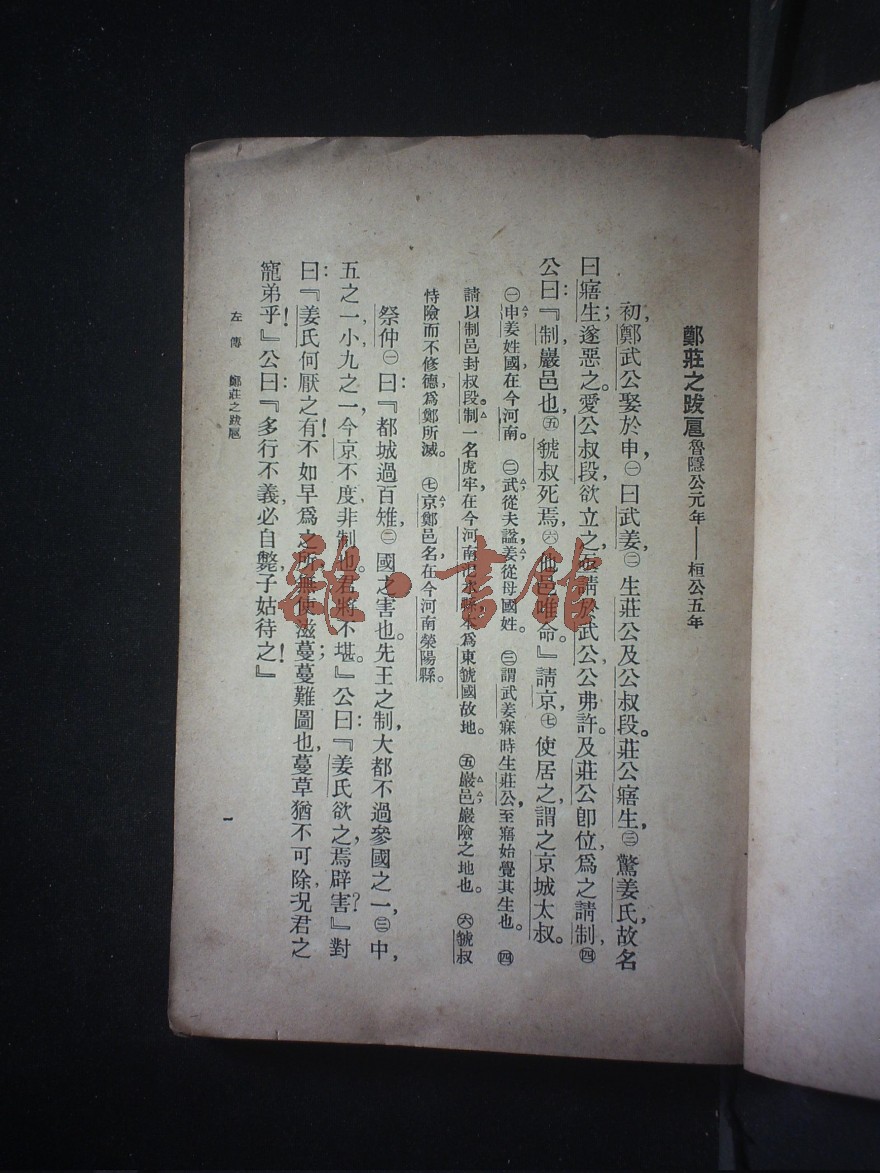 鄭莊之跋扈 魯隱公元年——桓公五年
初，鄭武公娶於申，㊀曰武姜，㊁生莊公及公叔段。莊公寤生，㊂驚姜氏，故名
曰寤生，遂惡之。愛公叔段，欲立之，亟請於武公，公弗許。及莊公卽位，爲之請制，㊃
公曰：『制，巖邑也，㊄虢叔死焉，㊅他邑唯命。』請京，㊆使居之，謂之京城太叔。
㊀申，姜姓國，在今河南。 ㊁武從夫諡，姜從母國姓。 ㊂謂武姜寐時生莊公，至寤始覺其生也。 ㊃
請以制邑封叔段。制一名虎牢，在今河南汜水縣，本爲東虢國故地。 ㊄巖邑，巖險之地也。 ㊅虢叔
恃險而不修德，爲鄭所滅。 ㊆京，鄭邑名，在今河南滎陽縣。
祭仲㊀曰：『都城過百雉，㊁國之害也。先王之制，大都不過參國之一，㊂中，
五之一，小，九之一，今京不度，非制也。君將不堪。』公曰：『姜氏欲之，焉辟害？』對
曰：『姜氏何厭之有！不如早爲之所，無使滋蔓；蔓，難圖也，蔓草猶不可除，況君之
寵弟乎！』公曰：『多行不義，必自斃，子姑待之！』
左傳 鄭莊之跋扈
一
雜·書館